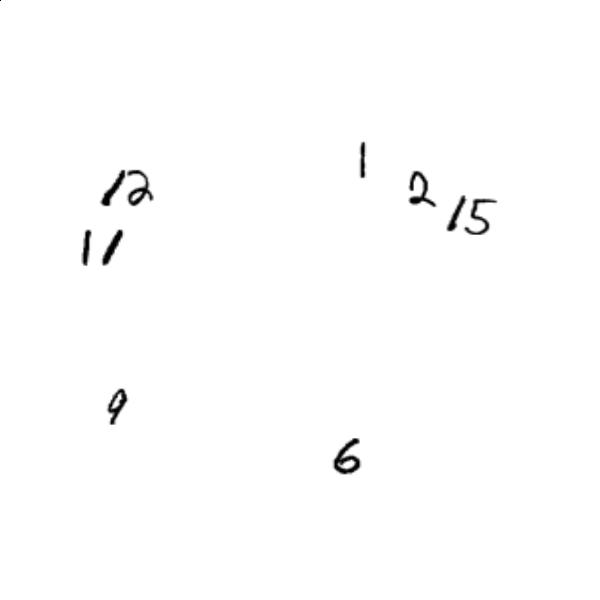 1
12
2
15
11
9
6